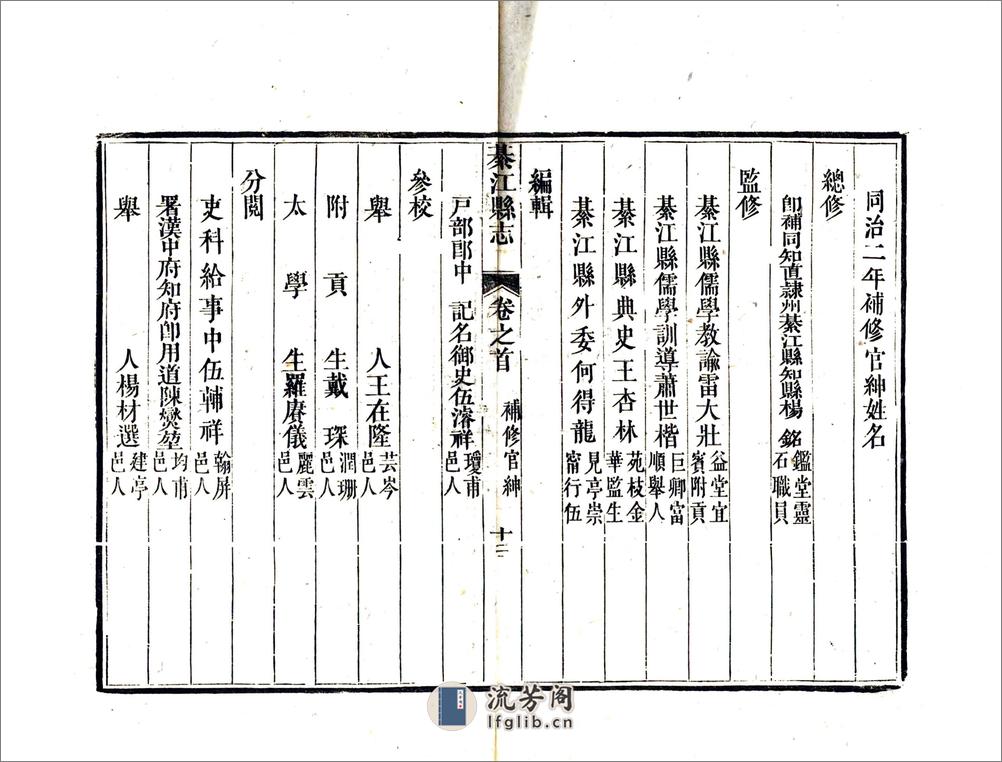 同治二年補修官紳姓名
總修
卽補同知直隸州綦江縣知縣楊 銘鑑堂靈石職員
監修
綦江縣儒學教諭雷大壯益堂宜賓附貢
綦江縣儒學訓導蕭世楷巨卿富順舉人
綦江縣典史王杏林苑枝金華監生
綦江縣外委何得龍見亭崇甯行伍
編輯
綦江縣志 卷之首 補修官紳 十二
戸部郎中 記名御史伍濬祥瓊甫邑人
參校
舉人王在隆芸岑邑人
附貢生戴 琛潤珊邑人
太學生羅賡儀麗雲邑人
分閲
吏科給事中伍輔祥翰屏邑人
署漢中府知府卽用道陳爕堃均甫邑人
舉人楊材選建亭邑人
流芳阁
lfglib.cn